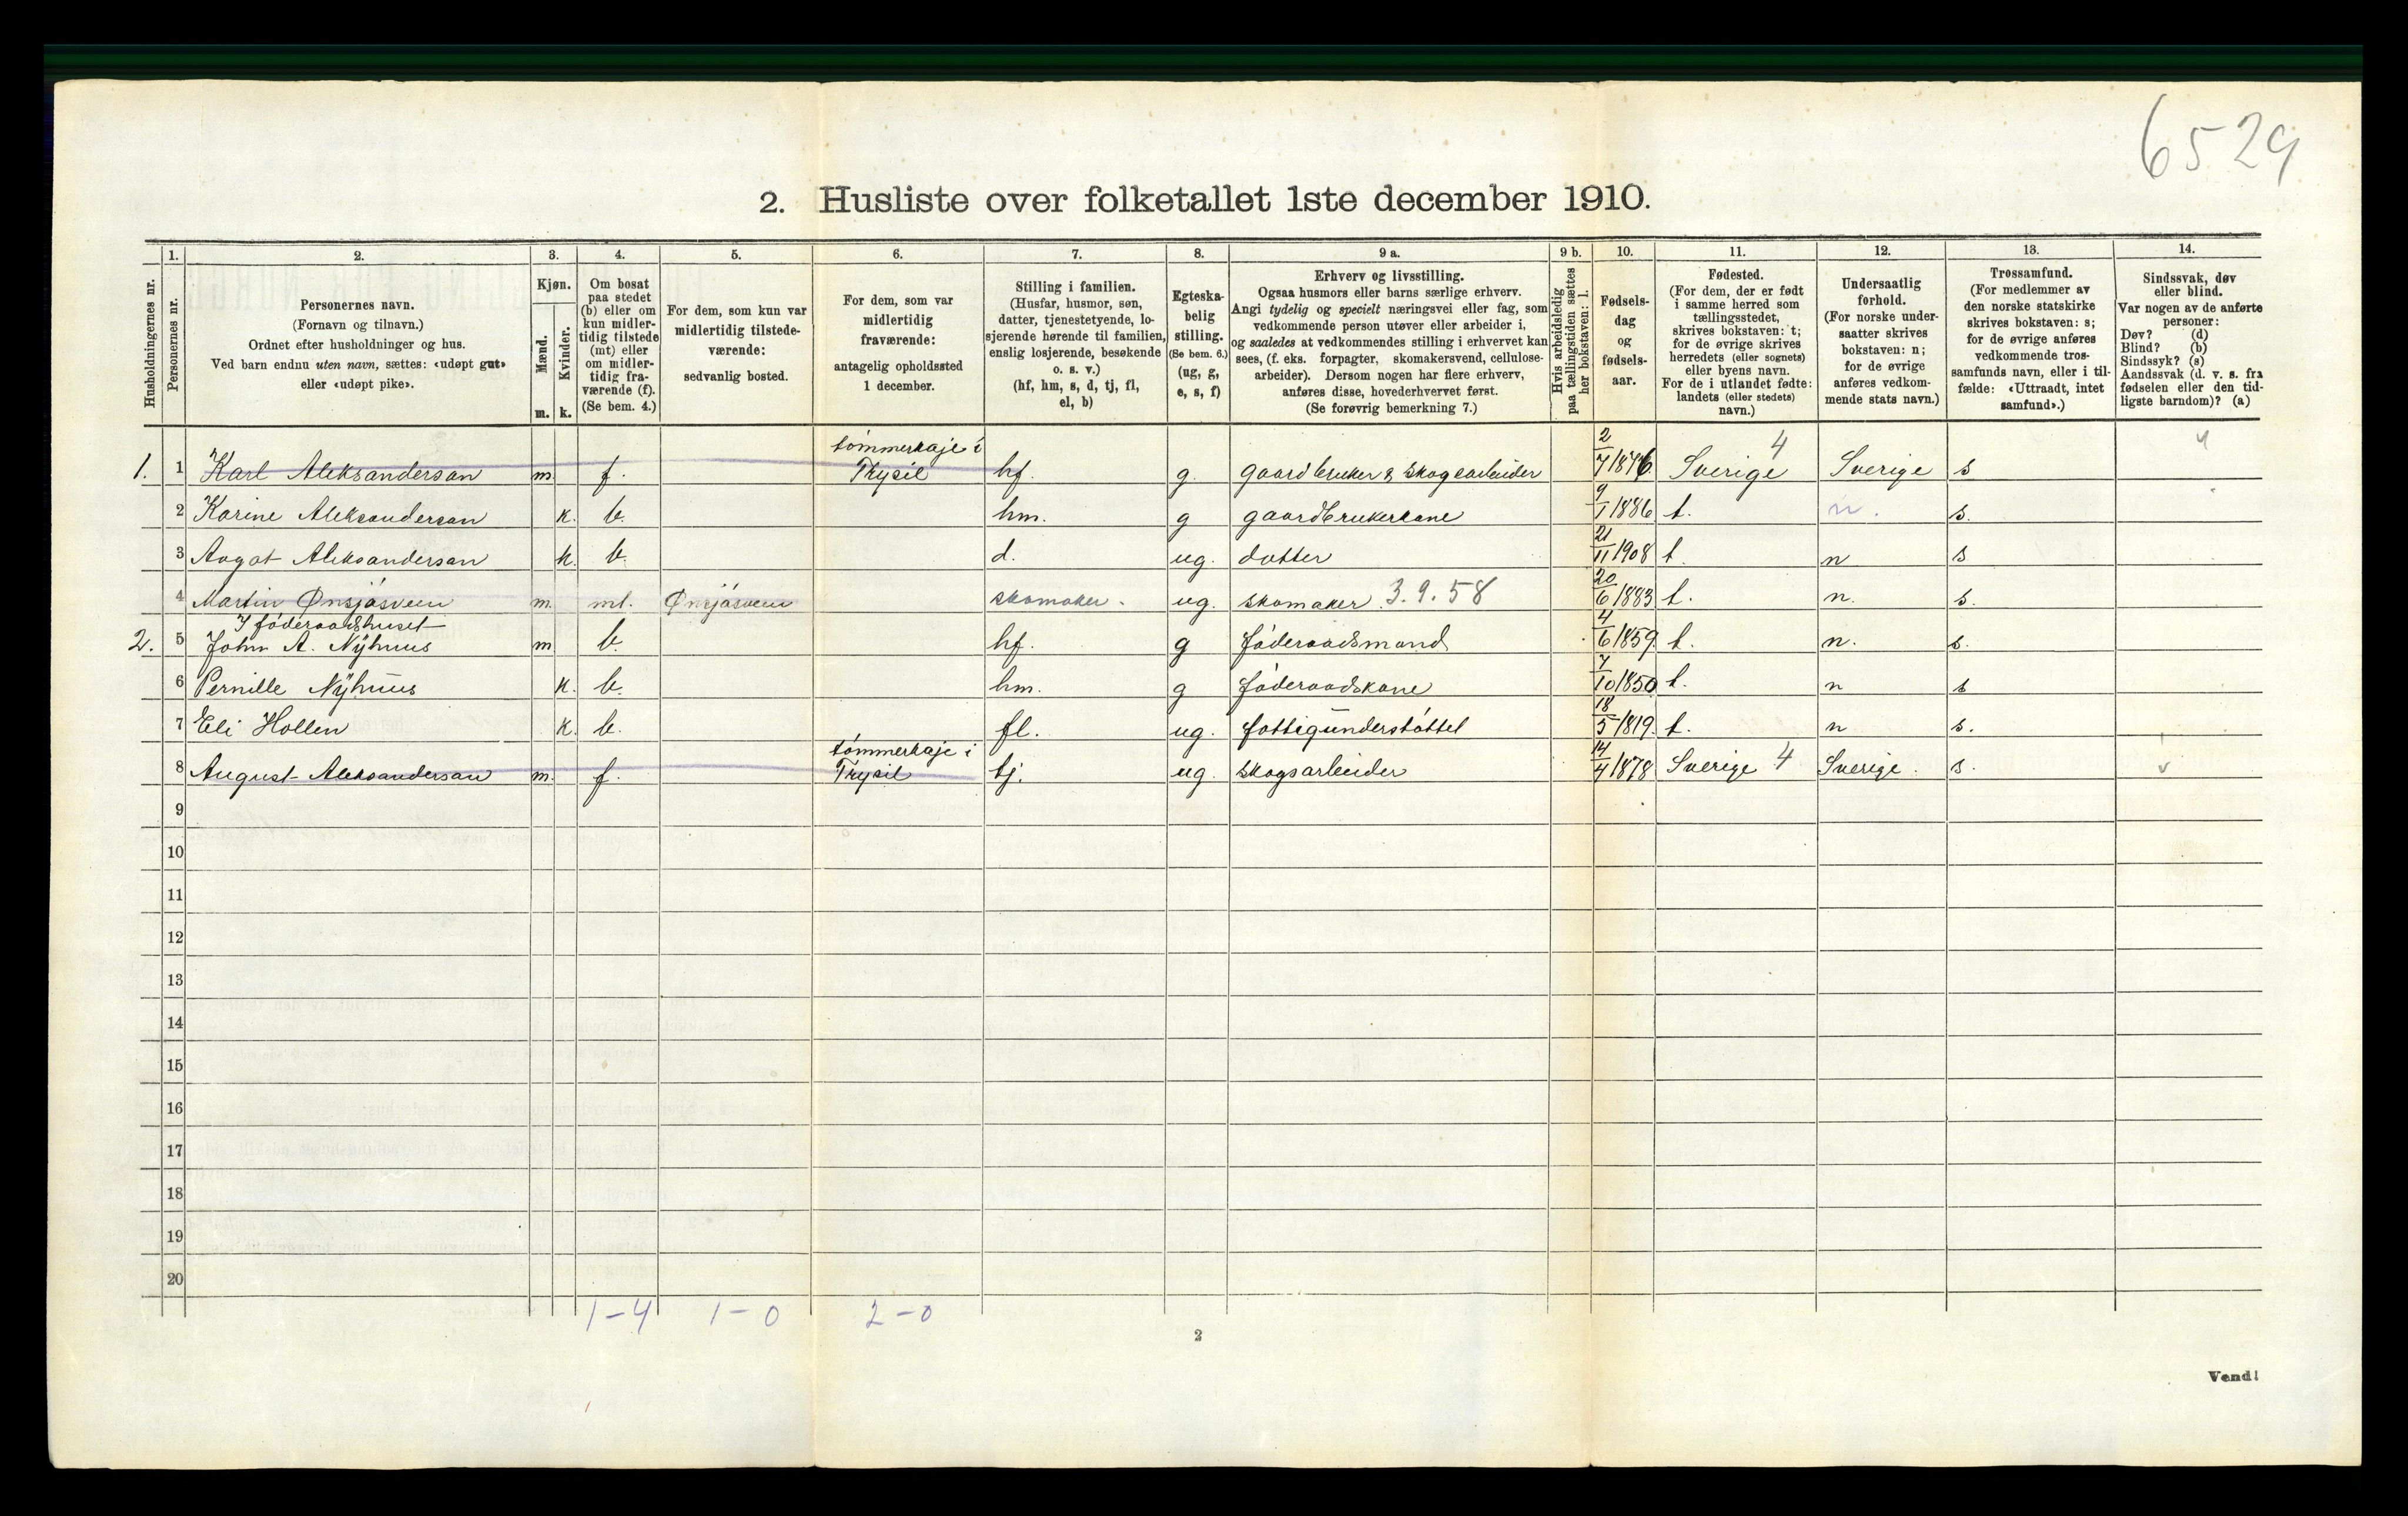 6529
2. Husliste over folketallet 1ste december 1910.
Husholdningernes nr.
1.
Personernes nr.
2.
Personernes navn.
(Fornavn og tilnavn.)
Ordnet efter husholdninger og hus.
Ved barn endnu uten navn, sættes: «udøpt gut»
eller «udøpt pike».
3.
Kjøn.
Mænd.
m.
Kvinder.
k.
4.
Om bosat
paa stedet
(b) eller om
kun midler-
tidig tilstede
(mt) eller
om midler-
tidig fra-
værende (f).
(Se bem. 4.)
5.
For dem, som kun var
midlertidig tilstede-
værende:
sedvanlig bosted.
6.
For dem, som var
midlertidig
fraværende:
antagelig opholdssted
1 december.
7.
Stilling i familien.
(Husfar, husmor, søn,
datter, tjenestetyende, lo-
sjerende hørende til familien,
enslig losjerende, besøkende
o. s. v.)
(hf, hm, s, d, tj, fl,
el, b)
8.
Egteska-
belig
stilling.
(Se bem. 6.)
(ug, g,
e, s, f)
9 a.
Erhverv og livsstilling.
Ogsaa husmors eller barns særlige erhverv.
Angi tydelig og specielt næringsvei eller fag, som
vedkommende person utøver eller arbeider i,
og saaledes at vedkommendes stilling i erhvervet kan
sees, (f. eks. forpagter, skomakersvend, cellulose-
arbeider). Dersom nogen har flere erhverv,
anføres disse, hovederhvervet først.
(Se forøvrig bemerkning 7.)
9 b.
Hvis arbeidsledig
paa tællingstiden sættes
her bokstaven: l.
10.
Fødsels-
dag
og
fødsels-
aar.
11.
Fødested.
(For dem, der er født
i samme herred som
tællingsstedet,
skrives bokstaven: t;
for de øvrige skrives
herredets (eller sognets)
eller byens navn.
For de i utlandet fødte:
landets (eller stedets)
navn.)
12.
Undersaatlig
forhold.
(For norske under-
saatter skrives
bokstaven: n;
for de øvrige
anføres vedkom-
mende stats navn.)
13.
Trossamfund.
(For medlemmer av
den norske statskirke
skrives bokstaven: s;
for de øvrige anføres
vedkommende tros-
samfunds navn, eller i til-
fælde: «Uttraadt, intet
samfund».)
14.
Sindssvak, døv
eller blind.
Var nogen av de anførte
personer:
Døv? (d)
Blind? (b)
Sindssyk? (s)
Aandssvak (d. v. s. fra
fødselen eller den tid-
ligste barndom)? (a)
tømmerkøje i 4
1. 1 Karl Aleksanderson m. f. Trysil hf. g. gaardbruker & skogsarbeider 2/7 1876 Sverige Sverige s
2 Karine Aleksanderson k. b. hm. g gaardbrukerkone 9/1 1886 t. n. s.
3 Aagot Aleksanderson k. b. d. ug. datter 21/11 1908 t. n s
4 Martin Ønsjøsveen m. mt. Ønsjøsveen skomaker. ug. skomaker 3.9.58 20/6 1883 t. n. s.
I føderaadshuset
2. 5 John A. Nÿhuus m b. hf. g føderaadsmand 4/6 1859. t. n. s.
6 Pernille Nÿhuus k. b. hm. g føderaadskone 7/10 1850 t. n s
7 Eli Hollen k. b. fl. ug. fattigunderstøttet 18/5 1819. t. n s.
tømmerkøje i
8 August Aleksanderson m. f. Trysil tj. ug. skogsarbeider 14/4 1878 Sverige 4 Sverige. s. v
9
10
11
12
13
14
15
16
17
18
19
20
1-4 1-0 2-0
2
Vend!